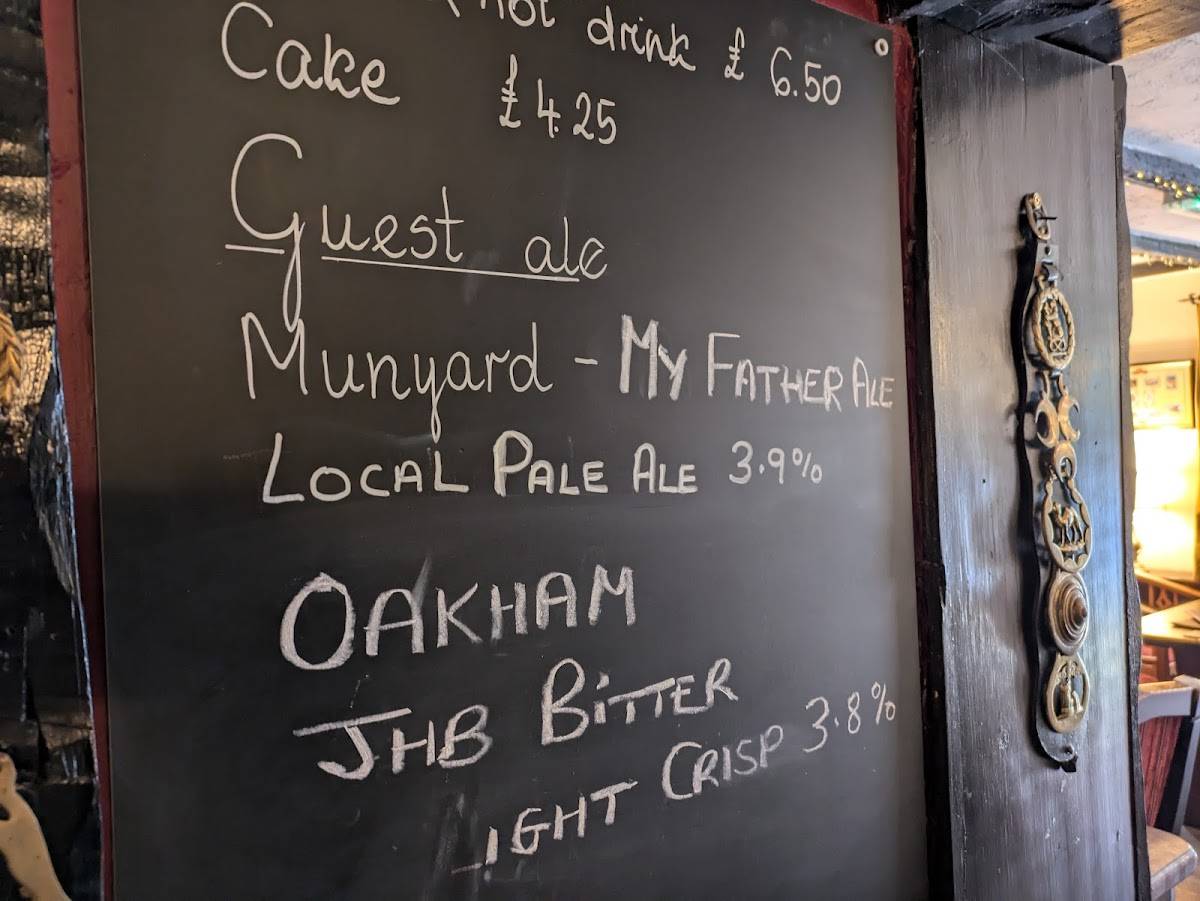 hot drink £ 6.50
Cake £4.25
Guest ale
Munyard - My Father Ale
Local Pale Ale 3.9%
Oakham
JHB Bitter
Light Crisp 3.8%